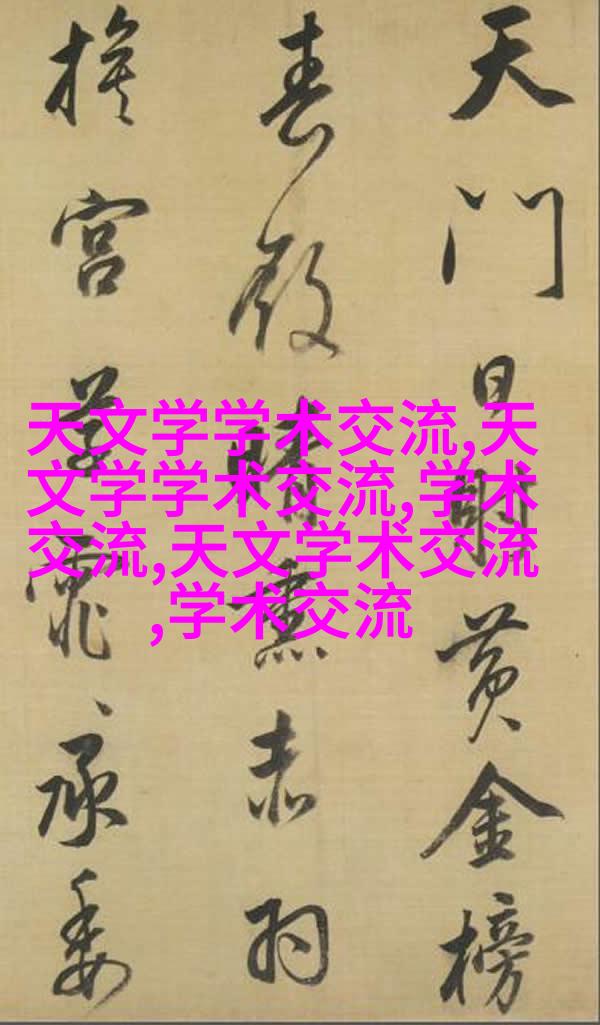 天门日射黄金榜
春殿晴熏赤羽
旗宫草霏々承委
天文学学术交流,天
文学学术交流,学术
交流,天文学术交流
,学术交流